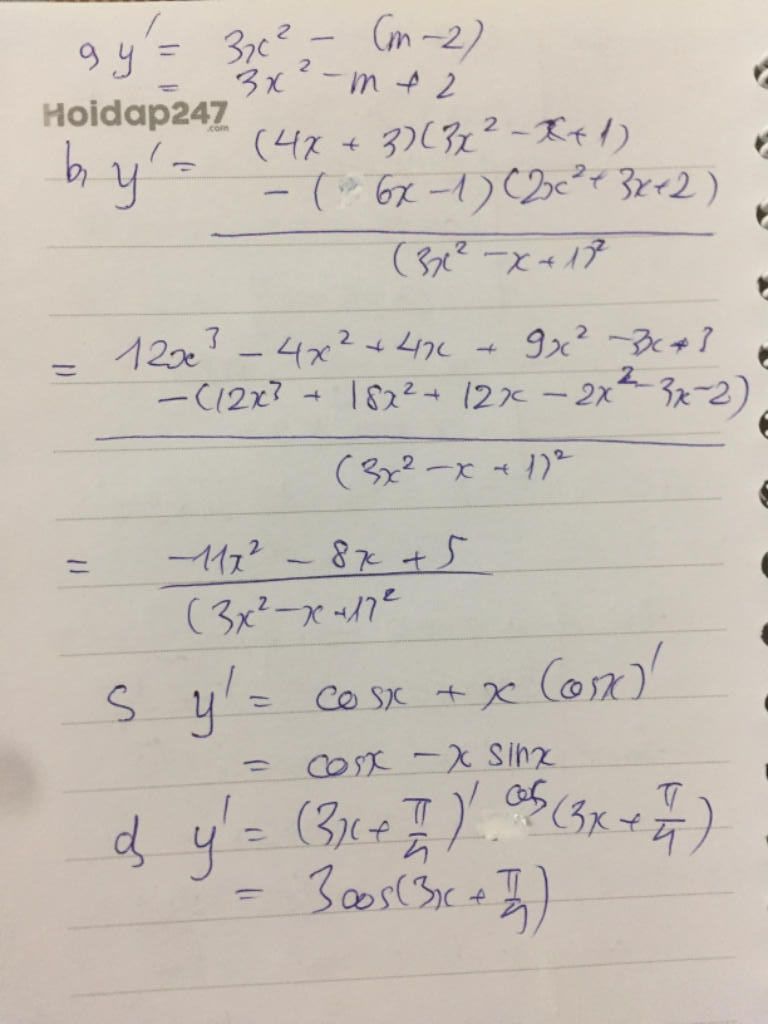 a, y' = 3x² - (m-2)
= 3x² - m + 2
Hoidap247.com
b, y' = (4x + 3)(3x² - x + 1)
- (6x - 1)(2x² + 3x + 2)
(3x² - x + 1)²
= 12x³ - 4x² + 4x + 9x² - 3x + 3
- (12x³ + 18x² + 12x - 2x² - 3x - 2)
(3x² - x + 1)²
= -11x² - 8x + 5
(3x² - x + 1)²
c, y' = cosx + x (cosx)'
= cosx - x sinx
d, y' = (3x + π/4)' cos(3x + π/4)
= 3cos(3x + π/4)